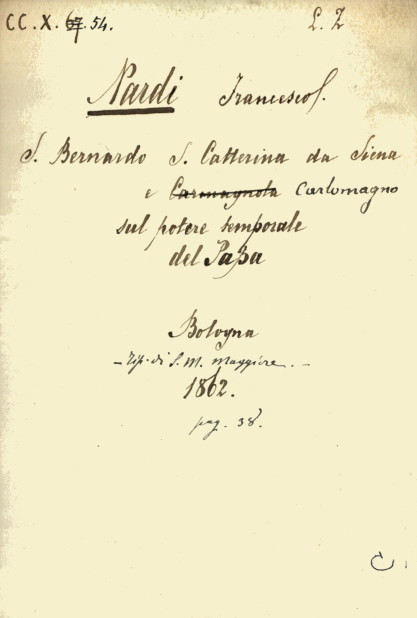 CC. X. 67. 54.
L. Z
Nardi Francesco.
S. Bernardo S. Catterina da Siena
e Carmagnola Carlomagno
sul potere temporale
del Papa
Bologna
– Tip. di S. M. Maggiore. –
1862.
pag. 38.
C.